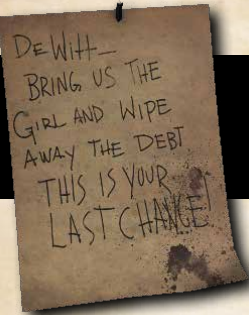 DEWITT—
BRING US THE
GIRL AND WIPE
AWAY THE DEBT.
THIS IS YOUR
LAST CHANCE!